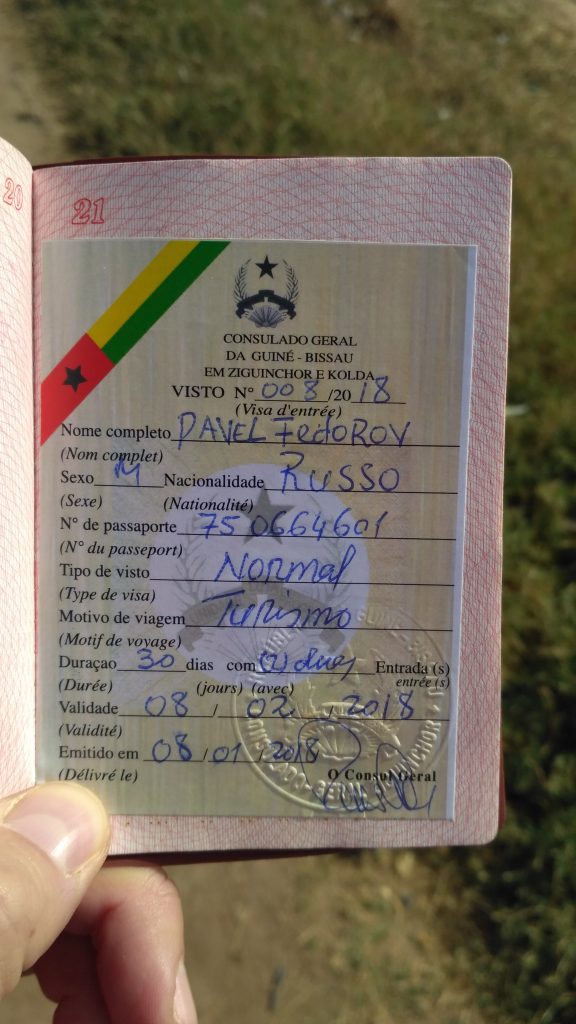 20
21
CONSULADO GERAL
DA GUINÉ - BISSAU
EM ZIGUINCHOR E KOLDA
VISTO N° 008 /20 18
(Visa d'entrée)
Nome completo PAVEL FEDOROV
(Nom complet)
Sexo M Nacionalidade RUSSO
(Sexe) (Nationalité)
N° de passaporte 75 0664601
(N° du passeport)
Tipo de visto Normal
(Type de visa)
Motivo de viagem Turismo
(Motif de voyage)
Duraçao 30 dias com (2) duas Entrada (s)
(Durée) (jours) (avec) entrée (s)
Validade 08 / 02 / 2018
(Validité)
Emitido em 08 / 01 / 2018
(Délivré le) O Consul Geral